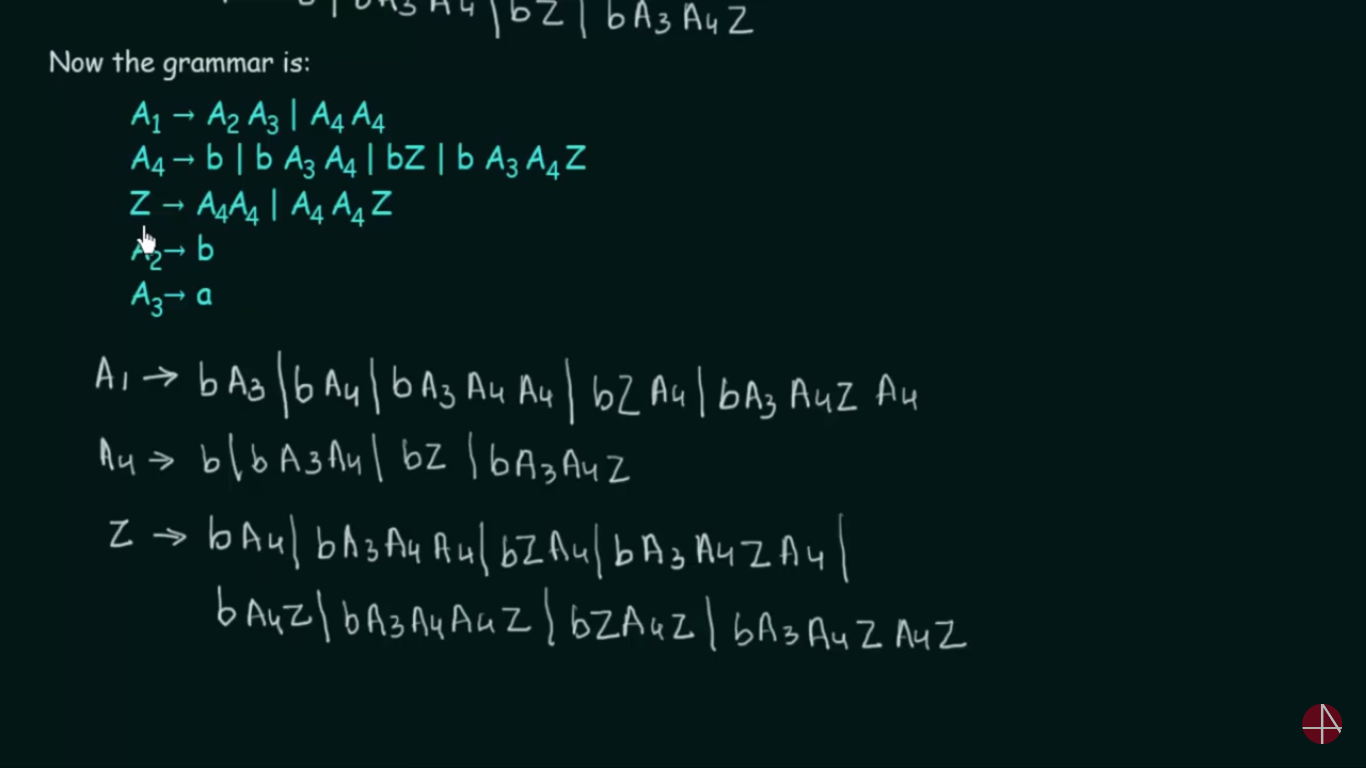 b | bA₃A₄ | bZ | bA₃A₄Z
Now the grammar is:
A₁ → A₂ A₃ | A₄ A₄
A₄ → b | b A₃ A₄ | bZ | b A₃ A₄ Z
Z → A₄A₄ | A₄ A₄ Z
A₂ → b
A₃ → a
A₁ → bA₃ | bA₄ | bA₃ A₄ A₄ | bZ A₄ | bA₃ A₄Z A₄
A₄ → b | b A₃A₄ | bZ | bA₃A₄Z
Z → bA₄ | bA₃A₄ A₄ | bZA₄ | bA₃ A₄ Z A₄ |
bA₄Z | bA₃A₄A₄Z | bZA₄Z | bA₃ A₄ Z A₄Z